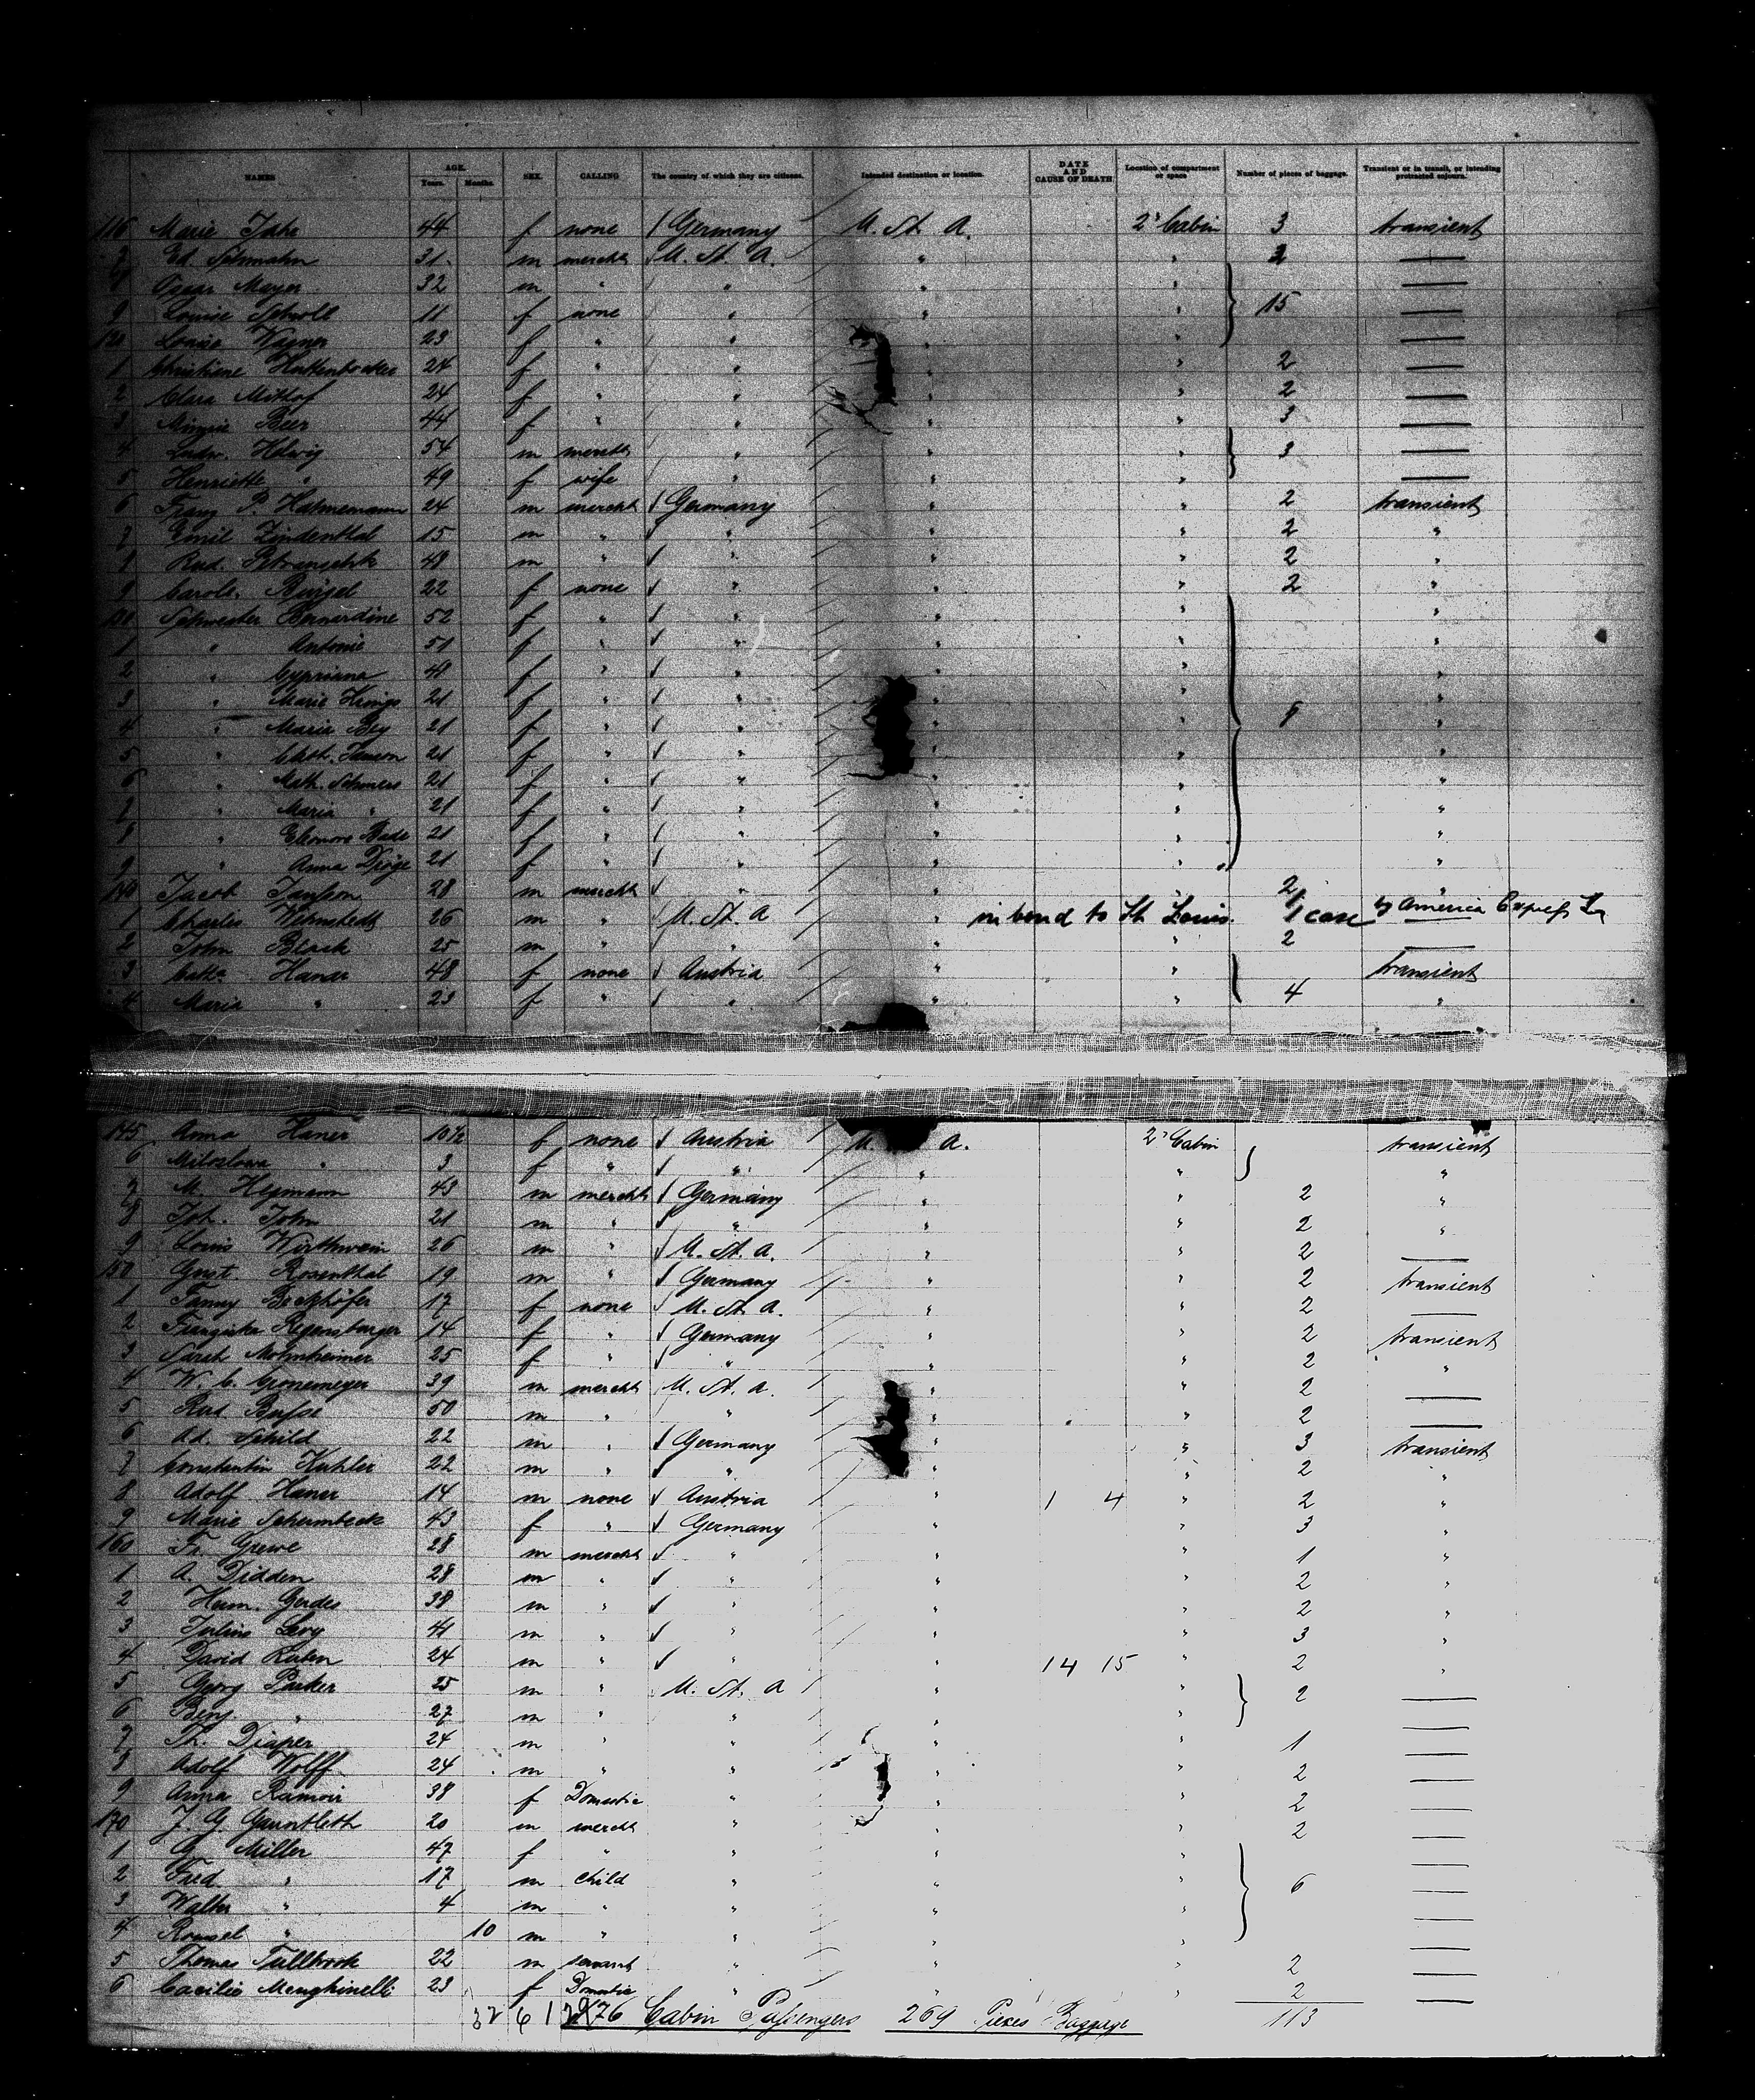 NAMES AGE. Years. Months. SEX. CALLING The country of which they are citizens. Intended destination or location. DATE AND CAUSE OF DEATH Location of compartment or space Number of pieces of baggage. Transient or in transit, or intending protracted sojourn.
116 Marie 44 f none Germany U. St. A. 2d Cabin 3 transient
7 Ed. 31 m mercht U. St. A. " " 2 —
8 Oscar Mayer 32 m " " " " —
9 Louise Scholl 11 f none " " " 15 —
120 Louise Wagner 23 f " " " " —
1 Christiane 24 f " " " " 2 —
2 Clara Mithof 24 f " " " " 2 —
3 Minnie Beer 44 f " " " " 3 —
4 Ludw. Helwig 54 m mercht " " " 3 —
5 Henriette " 49 f wife " " " —
6 Franz P. Hahnemann 24 m mercht Germany " " 2 transient
7 Emil Lindenthal 15 m " " " " 2 "
8 Rud. 48 m " " " " 2 "
9 Carole. 22 f none " " " 2 "
130 Schwester Bernardine 52 f " " " " "
1 " Antonie 51 f " " " " "
2 " Cypriana 48 f " " " " "
3 " Marie Hrings 21 f " " " " 8 "
4 " Marie Bey 21 f " " " " "
5 " Cath. Janson 21 f " " " " "
6 " Math. Schmers 21 f " " " " "
7 " Maria " 21 f " " " " "
8 " Eleonore Bade 21 f " " " " "
9 " Anna Dröge 21 f " " " " "
140 Jacob Janson 28 m mercht " " " 2 "
1 Charles Wehmstedt 26 m " U. St. A " in bond to St Louis. 1 case by America Express Co
2 John Black 25 m " " " " 2 —
3 Catha. Haner 48 f none Austria " " transient
4 Maria " 23 f " " " " 4 "
145 Anna Haner 10½ f none Austria U. A. 2d Cabin transient
6 Miloslawa " 3 f " " " " "
7 M. Heymann 43 m mercht Germany " " 2 "
8 Joh. John 21 m " " " " 2 "
9 Louis Wirthwein 26 m " U. St. A. " " 2 —
150 Gust. Rosenthal 19 m " Germany " " 2 transient
1 Fanny Beckhöfer 17 f none U. St. A. " " 2 —
2 Franziska Regensburger 14 f " Germany " " 2 transient
3 Sarah 25 f " " " " 2 "
4 W. C. Gronemeyer 39 m mercht U. St. A. " " 2 —
5 Rud. Busse 50 m " " " " 2 —
6 Ad. Schild 22 m " Germany " " 3 transient
7 Constantin Kuhler 22 m " " " " 2 "
8 Adolf Haner 14 m none Austria " 1 4 " 2 "
9 Marie Schermbeck 43 f " Germany " " 3 "
160 Fr. Grewe 28 m mercht " " " 1 "
1 A. Didden 28 m " " " " 2 "
2 Herm. Gerdes 38 m " " " " 2 "
3 Julius Levy 41 m " " " " 3 "
4 David Kuhn 24 m " " " 14 15 " 2 "
5 Georg Parker 25 m " U. St. A " " 2 —
6 Benj. " 27 m " " " " —
7 Th. Diaper 24 m " " " " 1 —
8 Adolf Wolff 24 m " " " " 2 —
9 Anna Ramoir 38 f Domestic " " " 2 —
170 J. G. Gauntlett 20 m mercht " " " 2 —
1 G. Miller 47 f " " " " —
2 Fred " 17 m child " " " 6 —
3 Walter " 4 m " " " " —
4 Roussel " 10 m " " " " —
5 Thomas Tullbrook 22 m servant " " " 2 —
6 Cacilie Menghinelli 23 f Domestic " " " 2 —
32 6 176 Cabin Passengers 269 Pieces Baggage 113